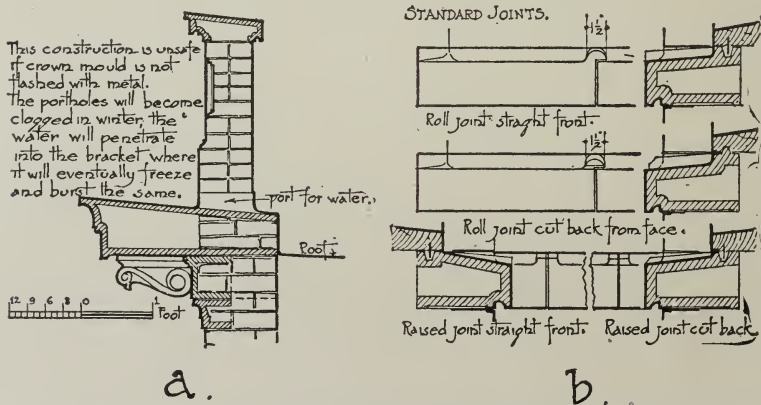 This construction is unsafe
if crown mould is not
flashed with metal.
The portholes will become
clogged in winter, the
water will penetrate
into the bracket where
it will eventually freeze
and burst the same.
port for water.
Roof
12 9 6 8 0 1
Foot
a.
STANDARD JOINTS.
1½"
Roll joint straght front.
1½"
Roll joint cut back from face.
Raised joint straight front. Raised joint cut back
b.